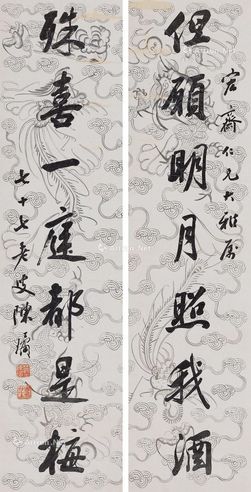 官齋仁兄大雅属
但願明月照我酒
殊喜一庭都是梅
七十七老叟陳